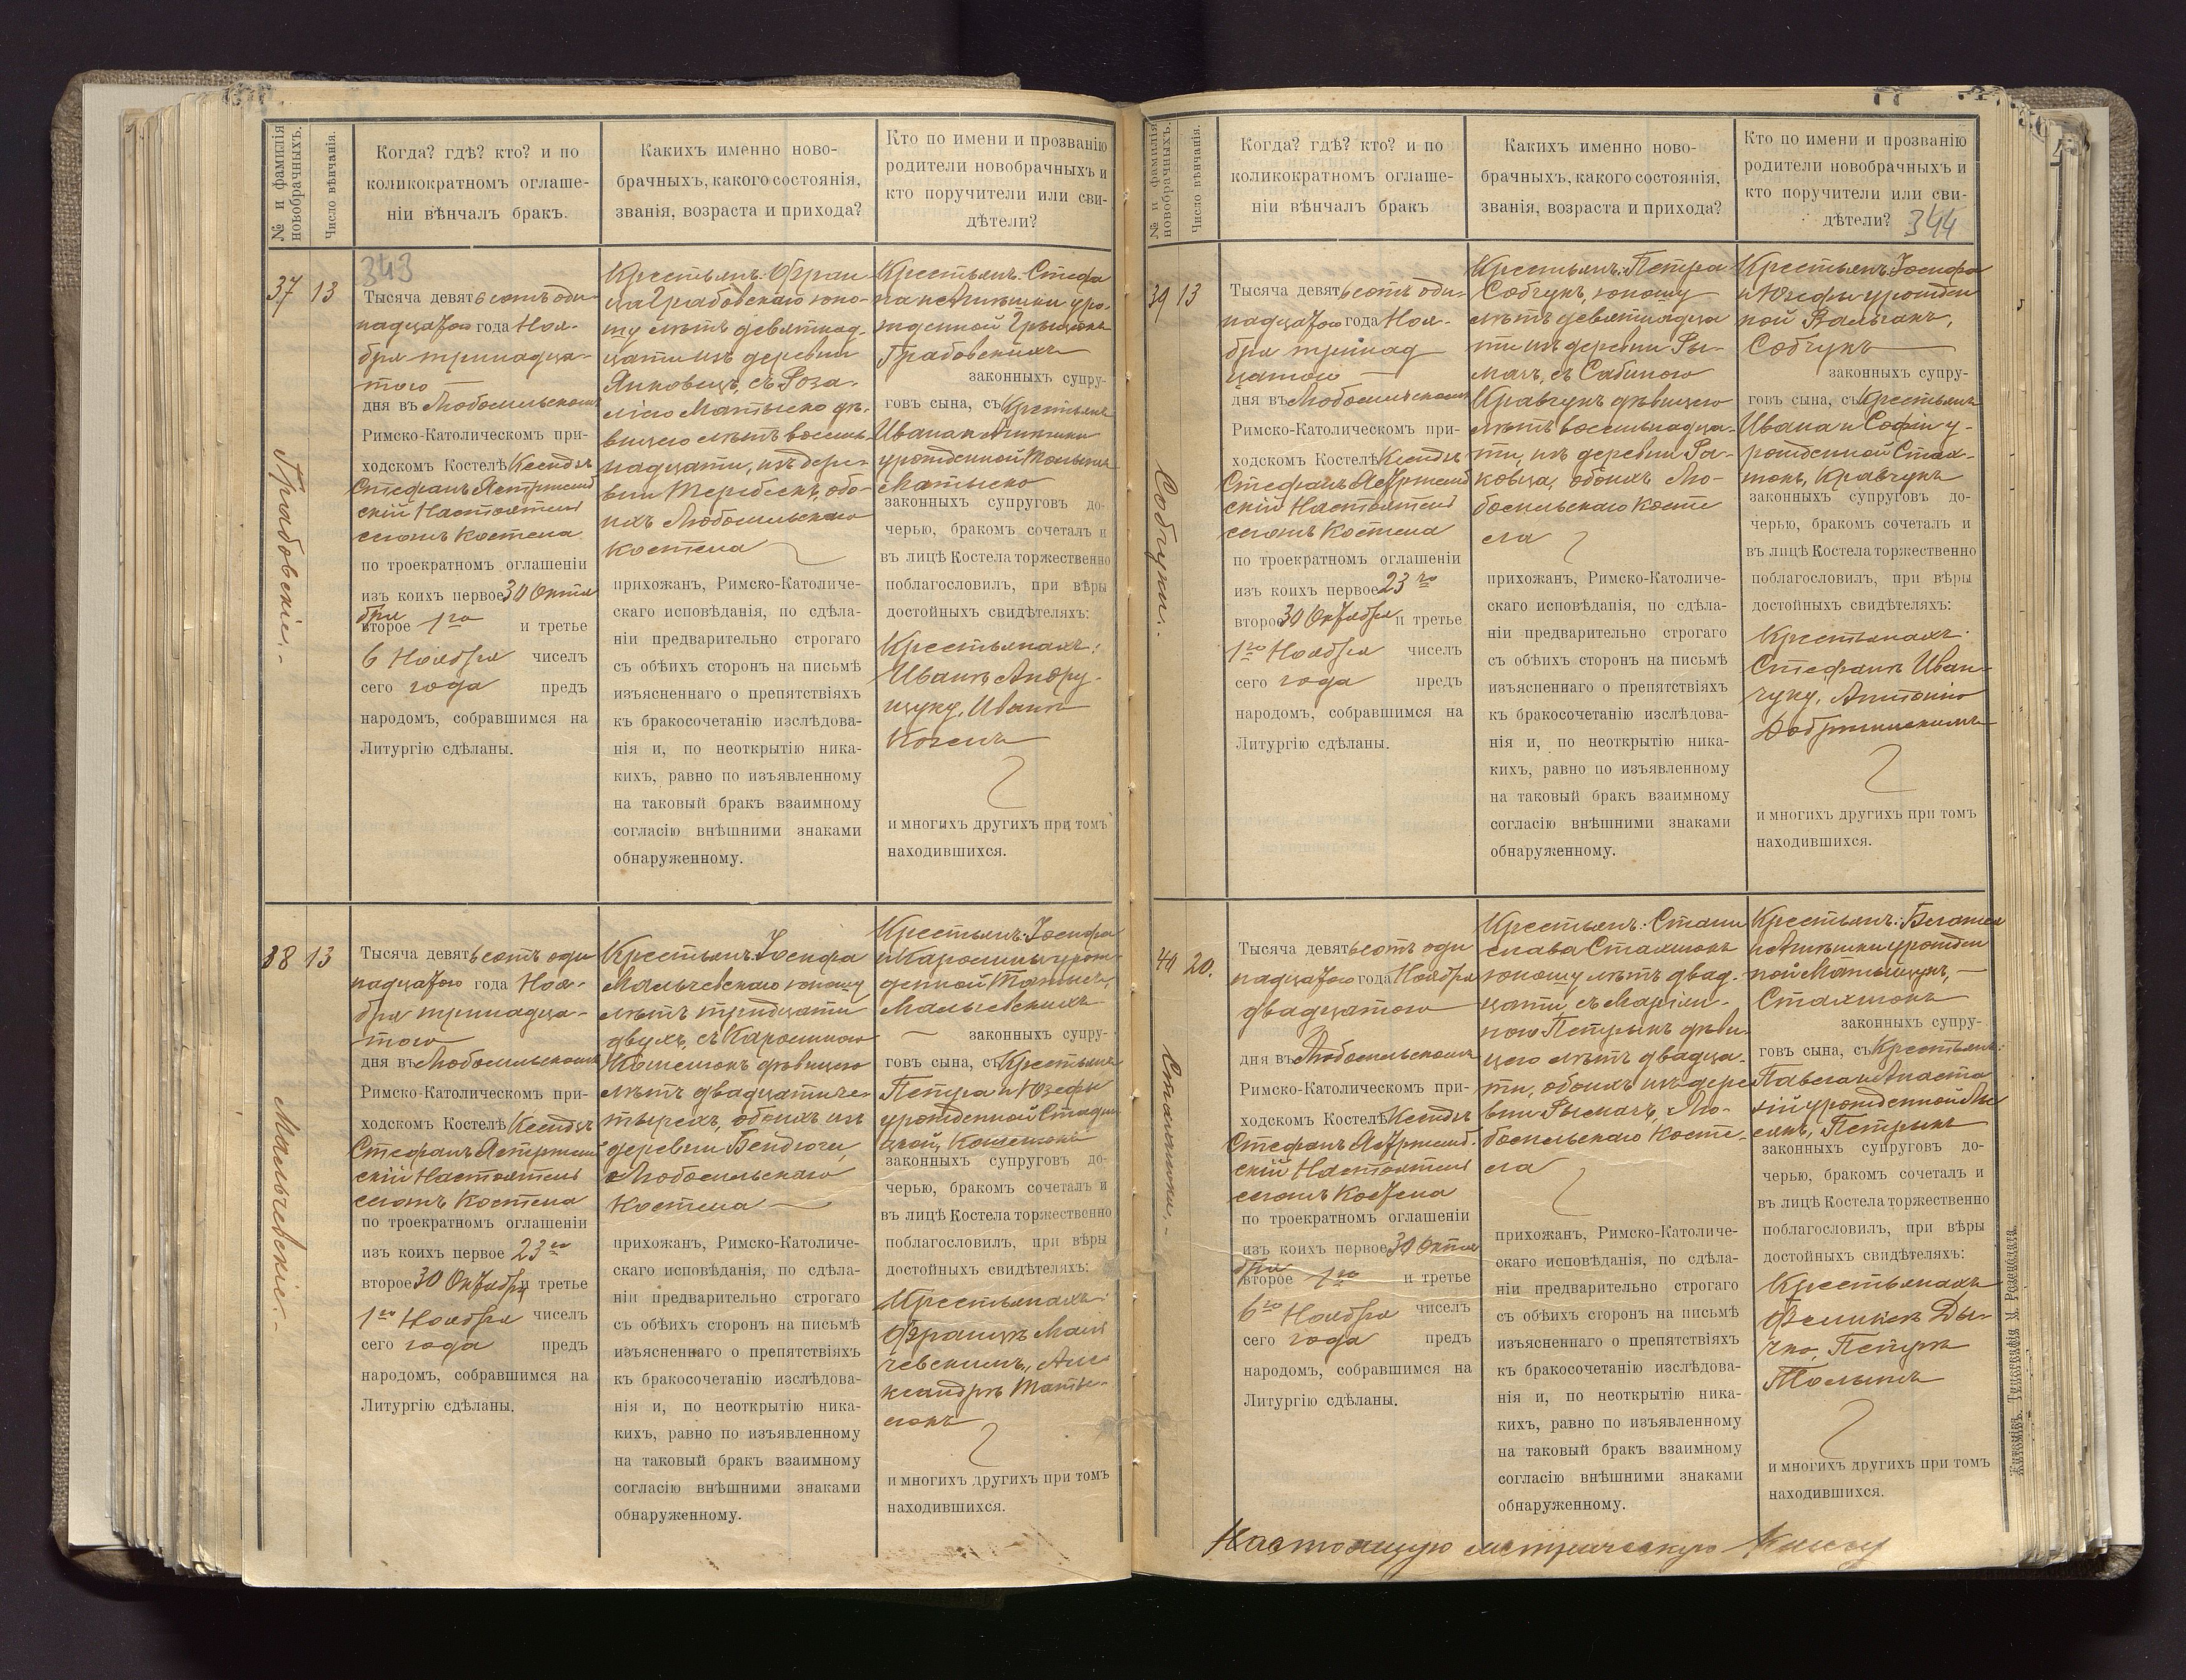 № и фамилія новобрачныхъ.
Число вѣнчанія.
Когда? гдѣ? кто? и по
коликократномъ оглаше-
ніи вѣнчалъ бракъ.
Какихъ именно ново-
брачныхъ, какого состоянія,
званія, возраста и прихода?
Кто по имени и прозванію
родители новобрачныхъ и
кто поручители или сви-
дѣтели?
37
13
Грабовскіе.-
343
Тысяча девятьсотъ оди-
надцатого года Ноя-
бря тринадца-
того
дня въ Любомльскомъ
Римско-Католическомъ при-
ходскомъ Костелѣ Ксендзъ
Стефанъ Ястржемб
скій Настоятель
сегожъ Костела
по троекратномъ оглашеніи
изъ коихъ первое 30 Октя
бря
второе 1го и третье
6 Ноября чиселъ
сего года предъ
народомъ, собравшимся на
Литургію сдѣланы.
Крестьянъ: Фран
ца Грабовскаго юно-
шу лѣтъ девятнад-
цати изъ деревни
Янковецъ, съ Роза-
ліею Матыско дѣ-
вицею лѣтъ восем-
надцати, изъ дере-
вни Теребеекъ, обо-
ихъ Любомльскаго
Костела
прихожанъ, Римско-Католиче-
скаго исповѣданія, по сдѣла-
ніи предварительно строгаго
съ обѣихъ сторонъ на письмѣ
изъясненнаго о препятствіяхъ
къ бракосочетанію изслѣдова-
нія и, по неоткрытію ника-
кихъ, равно по изъявленному
на таковый бракъ взаимному
согласію внѣшними знаками
обнаруженному.
Крестьянъ: Стефа
на и Агнешки уро-
жденной
Грабовскихъ
законныхъ супру-
говъ сына, съ Крестьянъ
Ивана и Агнешки
урожденной
Матыско
законныхъ супруговъ до-
черью, бракомъ сочеталъ и
въ лицѣ Костела торжественно
поблагословилъ, при вѣры
достойныхъ свидѣтеляхъ:
Крестьянахъ:
Иванѣ Андру-
щуку, Иванѣ
Козелъ
и многихъ другихъ при томъ
находившихся.
38
13
Мальчевскіе.-
Тысяча девятьсотъ оди
надцатого года Ноя-
бря тринадца-
того
дня въ Любомльскомъ
Римско-Католическомъ при-
ходскомъ Костелѣ Ксендзъ
Стефанъ Ястржемб
скій Настоятель
сегожъ Костела
по троекратномъ оглашеніи
изъ коихъ первое 23го
второе 30 Октября и третье
1го Ноября чиселъ
сего года предъ
народомъ, собравшимся на
Литургію сдѣланы.
Крестьянъ: Іосифа
Мальчевскаго юношу
лѣтъ тридцати
двухъ, съ Каролиною
дѣвицею
лѣтъ двадцати че-
тырехъ, обоихъ изъ
деревни Бендюги,
Любомльскаго
Костела
прихожанъ, Римско-Католиче-
скаго исповѣданія, по сдѣла-
ніи предварительно строгаго
съ обѣихъ сторонъ на письмѣ
изъясненнаго о препятствіяхъ
къ бракосочетанію изслѣдова-
нія и, по неоткрытію ника-
кихъ, равно по изъявленному
на таковый бракъ взаимному
согласію внѣшними знаками
обнаруженному.
Крестьянъ: Іосифа
и Каролины урож-
денной
Мальчевскихъ
законныхъ супру-
говъ сына, съ Крестьянъ
Петра и Юзефы
урожденной
законныхъ супруговъ до-
черью, бракомъ сочеталъ и
въ лицѣ Костела торжественно
поблагословилъ, при вѣры
достойныхъ свидѣтеляхъ:
Крестьянахъ:
Францѣ Маль
чевскимъ, Але-
ксандрѣ
и многихъ другихъ при томъ
находившихся.
№ и фамилія новобрачныхъ.
Число вѣнчанія.
Когда? гдѣ? кто? и по
коликократномъ оглаше-
ніи вѣнчалъ бракъ
Какихъ именно ново-
брачныхъ, какого состоянія,
званія, возраста и прихода?
Кто по имени и прозванію
родители новобрачныхъ и
кто поручители или сви-
дѣтели?
344
39
13
Собчуки.-
Тысяча девятьсотъ оди-
надцатого года Ноя-
бря тринад
цатого
дня въ Любомльскомъ
Римско-Католическомъ при-
ходскомъ Костелѣ Ксендзъ
Стефанъ Ястржемб
скій Настоятель
сегожъ Костела
по троекратномъ оглашеніи
изъ коихъ первое 23го
второе 30 Октября и третье
1го Ноября чиселъ
сего года предъ
народомъ, собравшимся на
Литургію сдѣланы.
Крестьянъ: Петра
Собчукъ, юношу
лѣтъ девятнадца
ти изъ деревни Ры-
мачъ, съ Сабиною
Кравчукъ дѣвицею
лѣтъ восемнадца-
ти, изъ деревни Ра-
ковца, обоихъ Лю-
бомльскаго Косте
ла
прихожанъ, Римско-Католиче-
скаго исповѣданія, по сдѣла-
ніи предварительно строгаго
съ обѣихъ сторонъ на письмѣ
изъясненнаго о препятствіяхъ
къ бракосочетанію изслѣдова-
нія и, по неоткрытію ника-
кихъ, равно по изъявленному
на таковый бракъ взаимному
согласію внѣшними знаками
обнаруженному.
Крестьянъ: Іосифа
и Юзефы урожден
ной
Собчукъ
законныхъ супру-
говъ сына, съ Крестьянъ
Ивана и Софіи у-
рожденной Стах-
нюкъ, Кравчукъ
законныхъ супруговъ до-
черью, бракомъ сочеталъ и
въ лицѣ Костела торжественно
поблагословилъ, при вѣры
достойныхъ свидѣтеляхъ:
Крестьянахъ:
Стефанѣ Иван-
чуку, Антонію
Добржинскимъ
и многихъ другихъ при томъ
находившихся.
40
20.
Стахнюки.-
Тысяча девятьсотъ оди
надцатого года Ноября
двадцатого
дня въ Любомльскомъ
Римско-Католическомъ при-
ходскомъ Костелѣ Ксендзъ
Стефанъ Ястржемб.
скій Настоятель
сегожъ Костела
по троекратномъ оглашеніи
изъ коихъ первое 30 Октя
бря
второе 1го и третье
6го Ноября чиселъ
сего года предъ
народомъ, собравшимся на
Литургію сдѣланы.
Крестьянъ: Стани
слава Стахнюкъ
юношу лѣтъ двад-
цати, съ
Петрыкъ дѣви-
цею лѣтъ двадца-
ти, обоихъ изъ дере
вни Рымачъ, Лю-
бомльскаго Косте-
ла
прихожанъ, Римско-Католиче-
скаго исповѣданія, по сдѣла-
ніи предварительно строгаго
съ обѣихъ сторонъ на письмѣ
изъясненнаго о препятствіяхъ
къ бракосочетанію изслѣдова-
нія и, по неоткрытію ника-
кихъ, равно по изъявленному
на таковый бракъ взаимному
согласію внѣшними знаками
обнаруженному.
Крестьянъ:
и Агнешки урожден
ной
Стахнюкъ
законныхъ супру-
говъ сына, съ Крестьянъ:
Павла и Анаста
зіи урожденной
Петрыкъ
законныхъ супруговъ до-
черью, бракомъ сочеталъ и
въ лицѣ Костела торжественно
поблагословилъ, при вѣры
достойныхъ свидѣтеляхъ:
Крестьянахъ
Феликсѣ Ды-
чко, Петрѣ
и многихъ другихъ при томъ
находившихся.
Житоміръ. Типографія М.
Настоящую метрическую Книгу